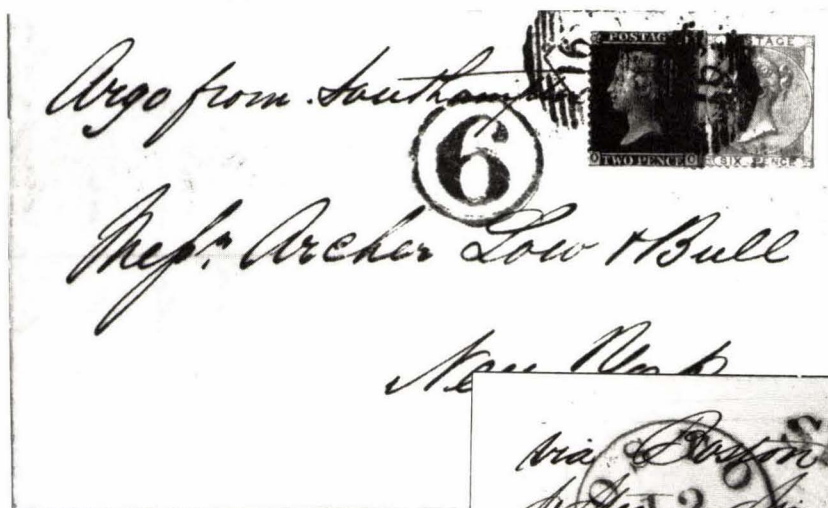 Argo from Southampton
16 16
POSTAGE POSTAGE
TWO PENCE SIX PENCE
6
Messrs. Archer Low & Bull
New York
via Boston
12